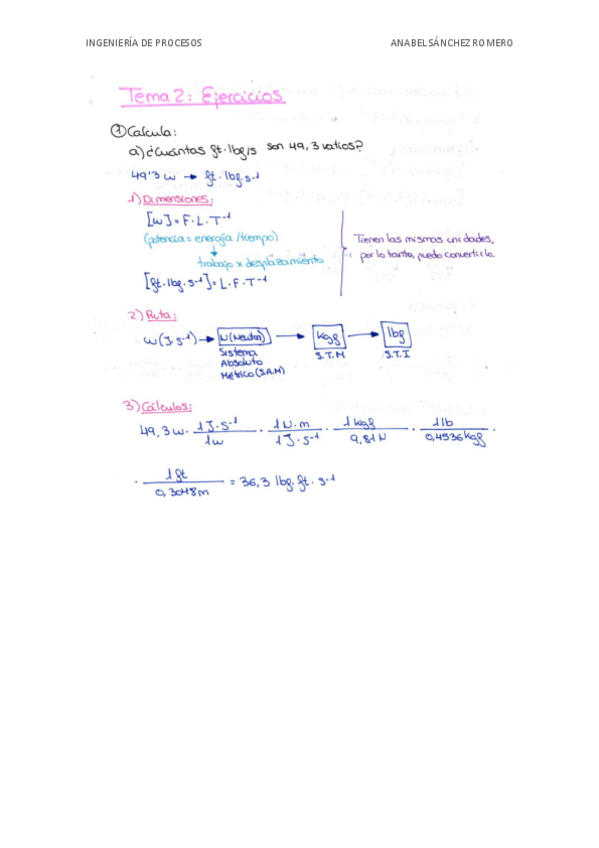 INGENIERÍA DE PROCESOS ANABEL SÁNCHEZ ROMERO
Tema 2: Ejercicios
① Calcula:
a) ¿Cuántas ft·lbf/s son 49,3 vatios?
49'3 w → ft·lbf·s-1
1) Dimensiones:
[w] = F·L·T-1
(potencia = energía/tiempo)
trabajo x desplazamiento
[ft·lbf·s-1] = L·F·T-1
Tienen las mismas unidades,
por lo tanto, puedo convertirlo.
2) Ruta:
w (J·s-1) → N (Newton) → kgf → lbf
Sistema Absoluto Métrico (S.A.M) S.T.M S.T.I
3) Cálculos:
49,3 w · 1 J·s-1 / 1w · 1 N·m / 1 J·s-1 · 1 kgf / 9,81 N · 1 lb / 0,4536 kgf ·
· 1 ft / 0,3048 m = 36,3 lbf·ft·s-1